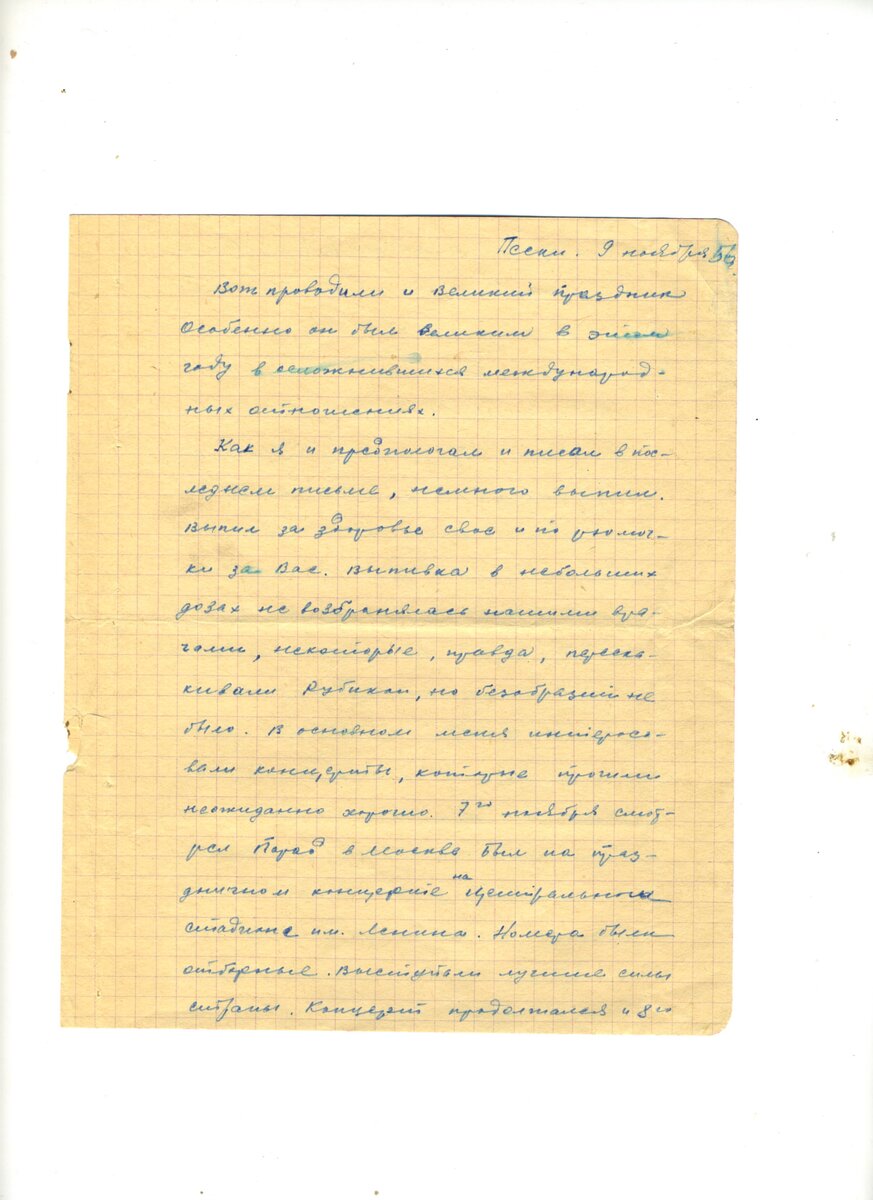 Пески. 9 ноября 56.
Вот проводили и Великий праздник
Особенно он был великим в этом
году в осложнившихся международ-
ных отношениях.
Как я и предпологал и писал в пос-
леднем письме, немного выпил.
Выпил за здоровье свое и по рюмоч-
ки за Вас. Выпивка в небольших
дозах не возбранялась нашими вра-
чами, некоторые, правда, переска-
кивали Рубикон, но безобразий не
было. В основном меня интересо-
вали концерты, которые прошли
неожиданно хорошо. 7го ноября смот-
рел Парад в Москве был на праз-
дничном концерте на Центральном
стадионе им. Ленина. Номера были
отборные. Выступали лучшие силы
страны. Концерт продолжался и 8го